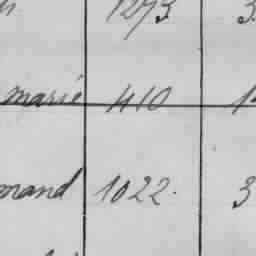 1273 3
marie 410 1
mand 1022. 3